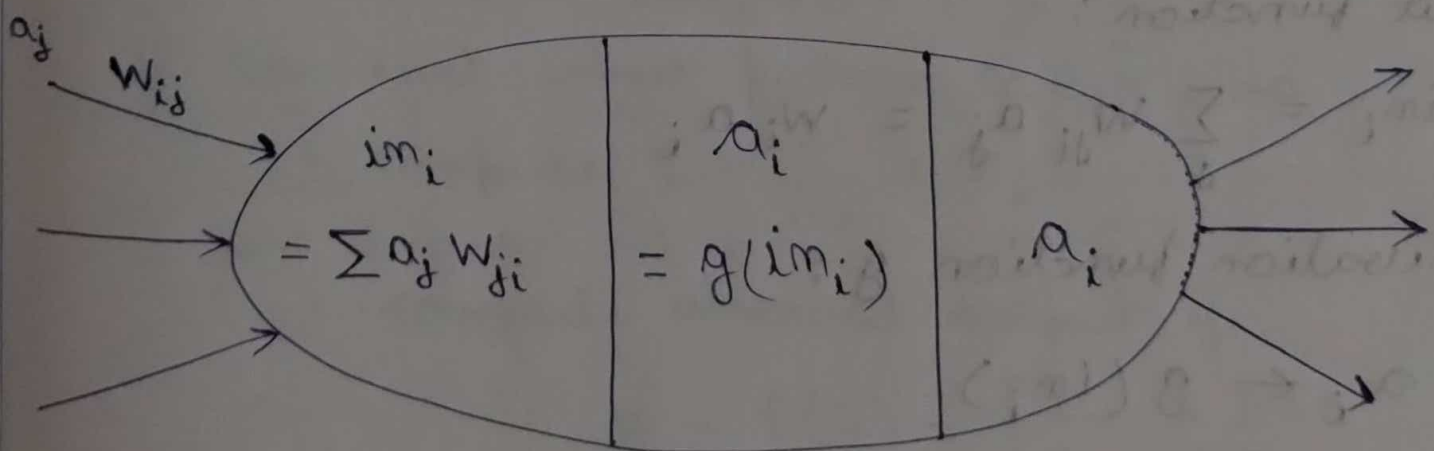 a_j
W_ij
in_i
= Σ a_j W_ji
a_i
= g(in_i)
a_i